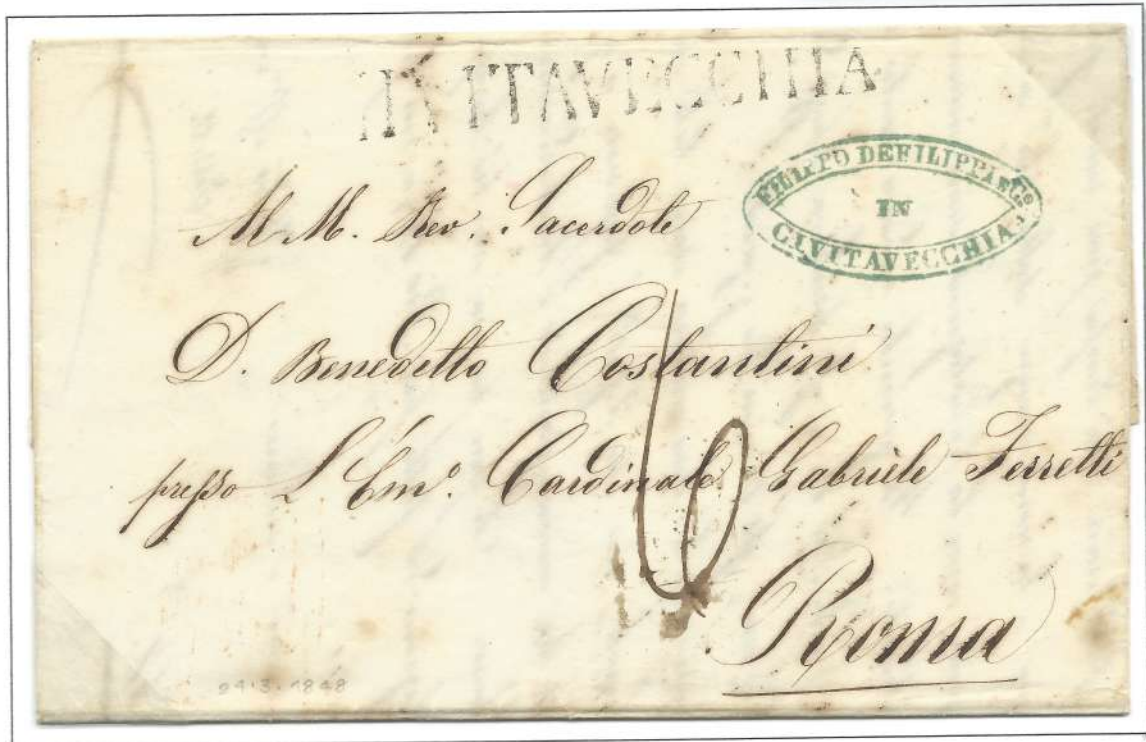 CIVITAVECCHIA
FILIPPO DEFILIPPI
IN
CIVITAVECCHIA
Al M. Rev. Sacerdote
D. Benedetto Costantini
presso L'Em.o Cardinale Gabriele Ferretti
6
Roma
24.3.1848